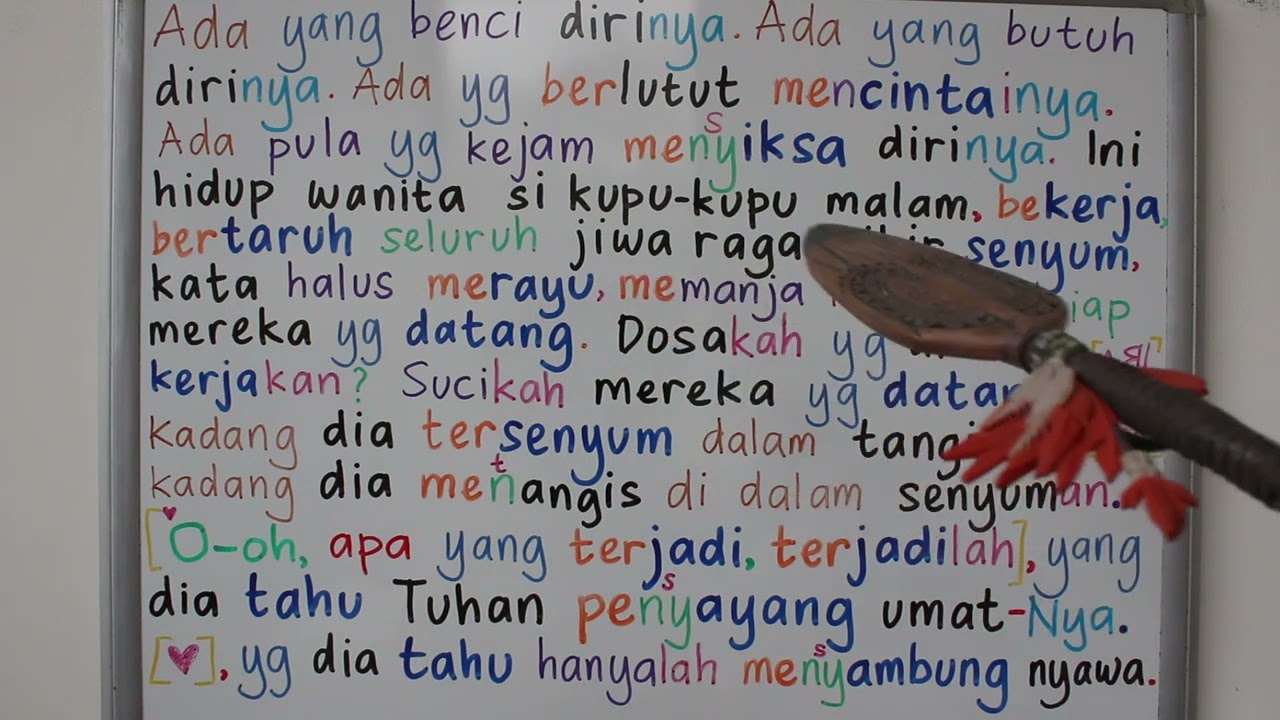 Ada yang benci dirinya. Ada yang butuh
dirinya. Ada yg berlutut mencintainya.
Ada pula yg kejam menyiksa dirinya. Ini
hidup wanita si kupu-kupu malam, bekerja,
bertaruh seluruh jiwa raga senyum,
kata halus merayu, memanja
mereka yg datang. Dosakah yg
kerjakan? Sucikah mereka yg
kadang dia tersenyum dalam
kadang dia menangis di dalam senyuman.
[O-oh, apa yang terjadi, terjadilah], yang
dia tahu Tuhan penyayang umat-Nya.
[♥], yg dia tahu hanyalah menyambung nyawa.